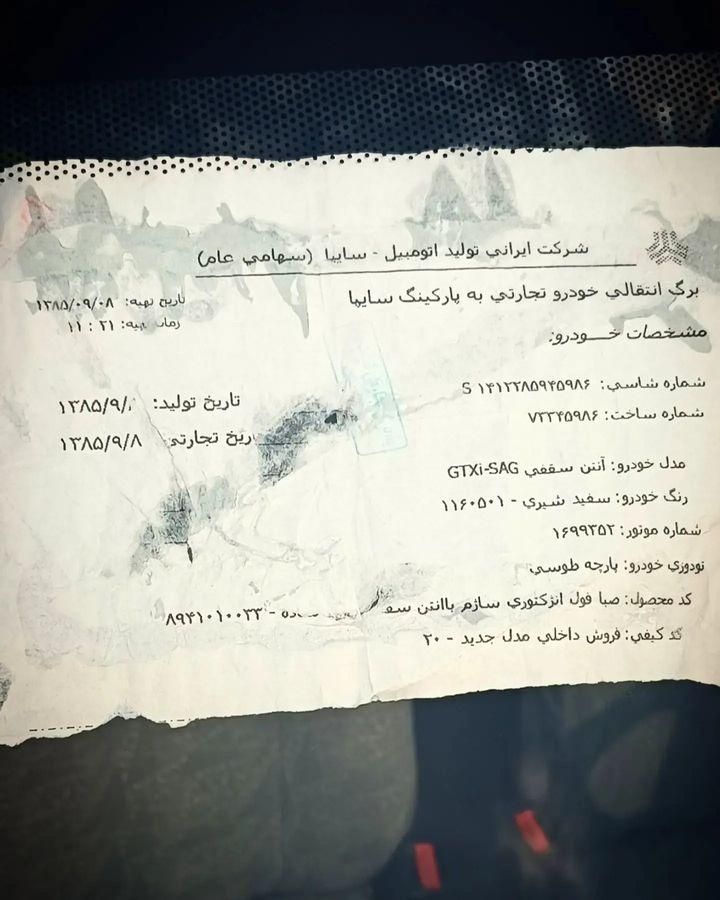 شرکت ايراني توليد اتومبيل - سايپا (سهامي عام)
برگ انتقالي خودرو تجارتي به پارکينگ سايپا
تاريخ تهيه: ۱۳۸۵/۰۹/۰۸
زمان تهيه: ۱۱ : ۲۱
مشخصات خـــودرو:
شماره شاسي: S ۱۴۱۲۲۸۵۹۴۵۹۸۶
تاريخ توليد: ۱۳۸۵/۹/
شماره ساخت: ۷۲۲۴۵۹۸۶
تجارتي ۱۳۸۵/۹/۸
مدل خودرو: آنتن سقفي GTXi-SAG
رنگ خودرو: سفيد شيري - ۱۱۶۰۵۰۱
شماره موتور: ۱۶۹۹۳۵۲
تودوزي خودرو: پارچه طوسي
کد محصول: صبا فول انژکتوري سازم باآنتن - ۸۹۴۱۰۱۰۰۳۳
کد کيفي: فروش داخلي مدل جديد - ۲۰